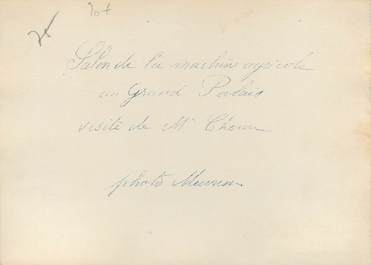 Salon de la machine agricole
au Grand Palais
visite de Mr Chéron
photo